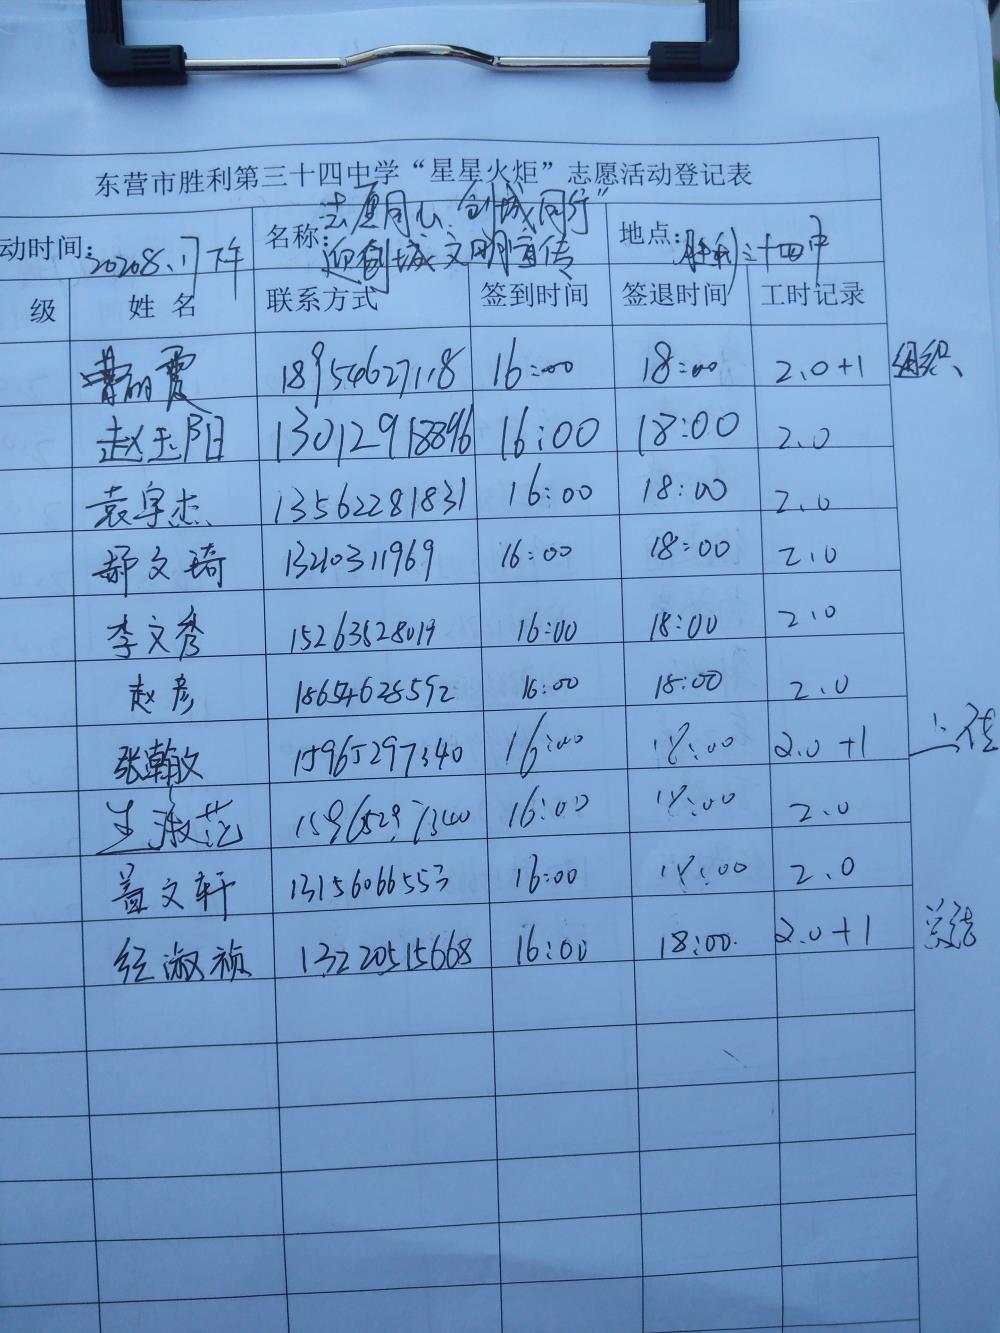 东营市胜利第三十四中学“星星火炬”志愿活动登记表
动时间: 2020.8.17下午 名称: 志愿同心、创城同行” 迎创城文明宣传 地点: 胜利三十四中
级 姓名 联系方式 签到时间 签退时间 工时记录
曹丽霞 18954627118 16:00 18:00 2.0+1 组织、
赵玉阳 13012918896 16:00 18:00 2.0
袁宇杰 13562281831 16:00 18:00 2.0
郝文琦 13210311969 16:00 18:00 2.0
李文秀 15263828019 16:00 18:00 2.0
赵彦 18654628592 16:00 18:00 2.0
张瀚文 15965297340 16:00 18:00 2.0+1 上传
王淑范 15965297340 16:00 18:00 2.0
盖文轩 13156066553 16:00 18:00 2.0
纪淑祯 13220515668 16:00 18:00. 2.0+1 总结